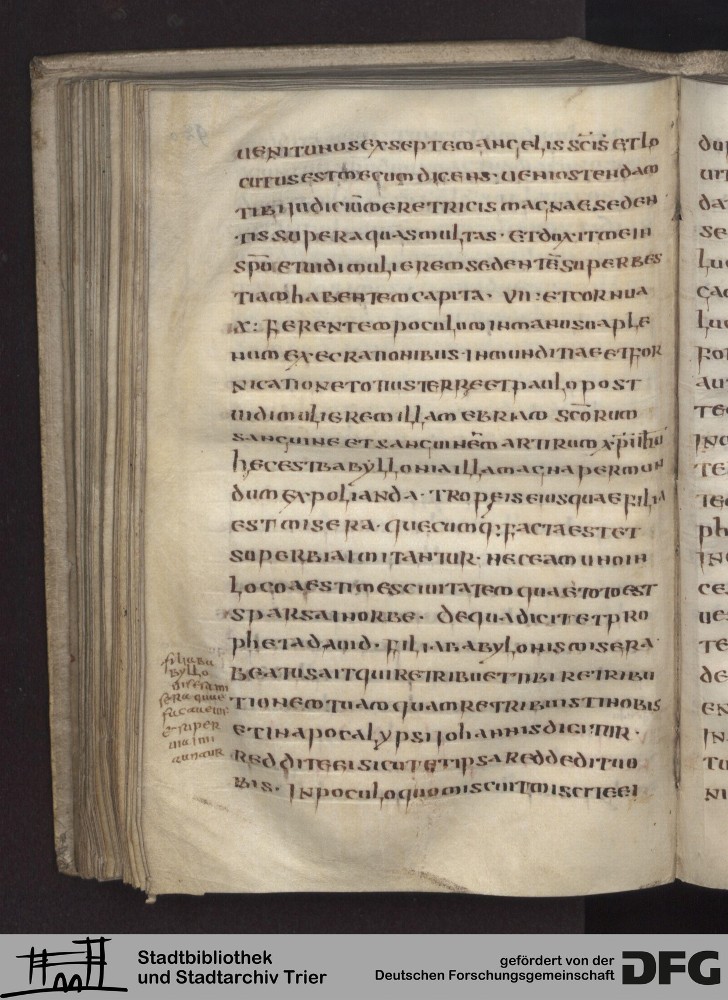 UENIT UNUS EX SEPTEM ANGELIS SCIS ET LO
CUTUS EST MECUM DICENS· UENI OSTENDAM
TIBI IUDICIŪ MERETRICIS MAGNAE SEDEN
TIS SUPER AQUAS MULTAS· ET DUXIT ME IN
SPŪ ET UIDI MULIEREM SEDENTĒ SUPER BES
TIAM HABENTEM CAPITA· VII· ET CORNUA
X· FERENTEM POCULUM IN MANU SUA PLE
NUM EXECRATIONIBUS· INMUNDITIAE ET FOR
NICATIONE TOTIUS TERRE ET PAULO POST
UIDI MULIEREM ILLAM EBRIAM SCŌRUM
SANGUINE ET SANGUINĒ MARTIRUM XPI IHU
HEC EST BABYLLONIA ILLA MAGNA PER MUN
DUM EXPOLIANDA· TROPEIS EIUSQUAE FILIA
EST MISERA· QUECUMQ; FACTAEST ET
SUPERBIA IMITANTUR· NEC EAM UNO IN
LOCO AESTIMES CIUITATEM QUAE TOTO EST
SPARSA IN ORBE· DE QUA DICIT ET PRO
PHETA DAUID· FILIA BABYLONIS MISERA
BEATUS AIT QUI RETRIBUET TIBI RETRIBU
TIONEM TUAM QUAM RETRIBUISTI NOBIS
ET IN APOCALYPSI IOHANNIS DICITUR·
REDDITE EI SICUT ET IPSA REDDEDIT UO
BIS· IN POCULO QUO MISCUIT MISCITE EI
filia ba
byllo
Stadtbibliothek
und Stadtarchiv Trier
gefördert von der
Deutschen Forschungsgemeinschaft
DFG